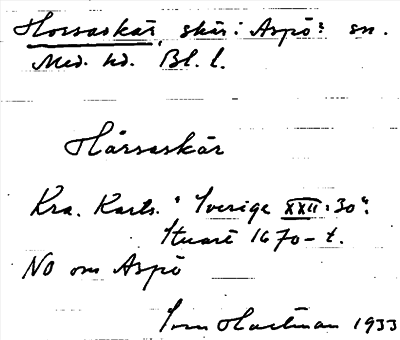 Horsaskär, skär i Aspö sn.
Med. hd. Bl. l.
Hårsaskär
Kra. Karts. "Sverige XXII:30".
Stuart 1670-t.
NO om Aspö
Sven Hartman 1933